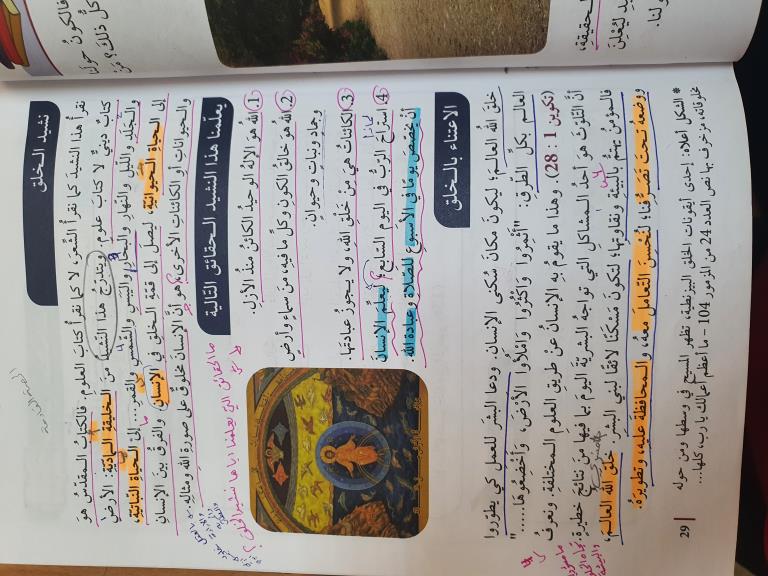 نشيد الـخلق
نقرأُ هذا النشيدَ كما نقرأُ الشِّعرَ، لا كما نقرأُ كتابَ العلوم. فالكتابُ المقدّسُ هو
كتابٌ دينيٌّ لا كتابُ علوم. ويتدرّجُ هذا النشيدُ من الـخليقةِ الـمادّيّة: الأرضِ
والـجَلَدِ والليلِ والنهارِ والبحارِ واليَبَسِ والشمسِ والقمر... إلى الـحياةِ النباتيّة،
إلى الـحياةِ الـحيوانيّة، ليصلَ إلى قمّةِ الـخلقِ في الإنسان. والفرقُ بينَ الإنسانِ
والحيواناتِ أو الكائناتِ الأخرى، هو أنَّ الإنسانَ مخلوقٌ على صورةِ الله ومثالِه.
يعلّمنا هذا النشيد الـحقائق التالية
1. الله هو الإلهُ الوحيدُ الكائنُ منذُ الأزل.
2. اللهُ هو خالقُ الكونِ وكلِّ ما فيه، من سماءٍ وأرضٍ
وجمادٍ ونباتٍ وحيوان.
3. الكائناتُ هي من خَلْقِ الله، ولا يـجوزُ عبادتُها.
4. استراحَ الربُّ في اليومِ السابع، ليُعلِّمَ الإنسانَ
لماذا
أن يخصِّصَ يومًا في الأسبوعِ للصلاةِ وعبادةِ الله
ما الحقائق التي يعلمنا اياها نشيد الخلق؟
الاعتناء بالـخلق
خلقَ الله العالـمَ؛ ليكونَ مكانَ سُكنى الإنسان. ودعا البشرَ للعملِ كي يطوّروا
العالـمَ بكلِّ الطُّرق: "أَنْمُوا وَاكْثُرُوا وَامْلأُوا الأَرْضَ، وَأَخْضِعُوهَا......"
(تكوين 1 : 28) وهذا ما يقومُ بهِ الإنسانُ عنْ طريقِ العلومِ الـمختلفة. ونعرفُ
أنَّ التلوّثَ هو أحدُ الـمشاكلِ التي تواجهُ البشريّةَ اليومَ بما فيها من نتائجَ خطيرة.
فالـمؤمنُ يهتمُّ بالبيئةِ ونقاوتِها، لتكونَ مَسْكنًا لائقًا لبني البشر. خلقَ الله العالـمَ،
ووضعَهُ تـحتَ تَصَرُّفِنا، لنُحْسِنَ التعاملَ معهُ، والـمحافظةَ عليه، وتطويرَهُ.
* الشكل أعلاه: إحدى أيقونات الخلق البيزنطية، تظهر المسيح في وسطها ومن حوله
مخلوقاته، مزخرف بها نص العدد 24 من المزمور 104 - ما أعظم أعمالك يا رب، كلها...
29
فالكونُ
كلَّ ذلك؟
الـحقيقة،